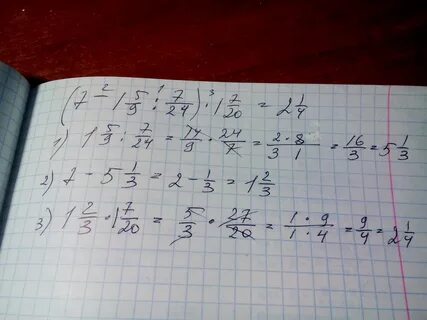 (7 - 1 5/9 : 7/24) · 1 7/20 = 2 1/4
1) 1 5/9 : 7/24 = 14/9 · 24/7 = 2·8/3 1 = 16/3 = 5 1/3
2) 7 - 5 1/3 = 2 - 1/3 = 1 2/3
3) 1 2/3 · 1 7/20 = 5/3 · 27/20 = 1·9/1·4 = 9/4 = 2 1/4